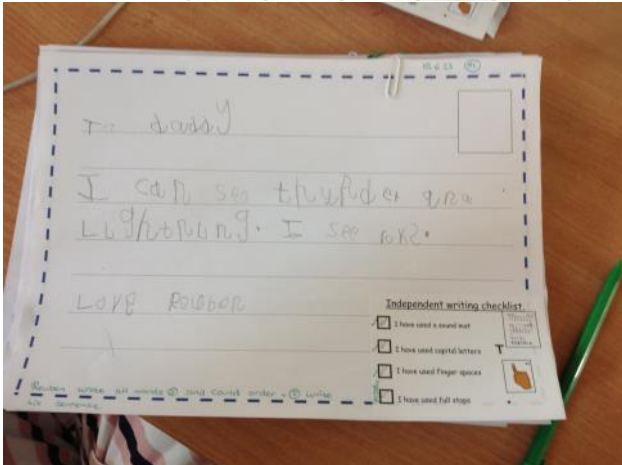 12.6.23
To daddy
I can see thunder and
Lightning. I see
Love Reuben
Independent writing checklist.
I have used a sound mat
I have used capital letters T
I have used finger spaces
I have used full stops .
Reuben wrote all words and could order + write
his sentence